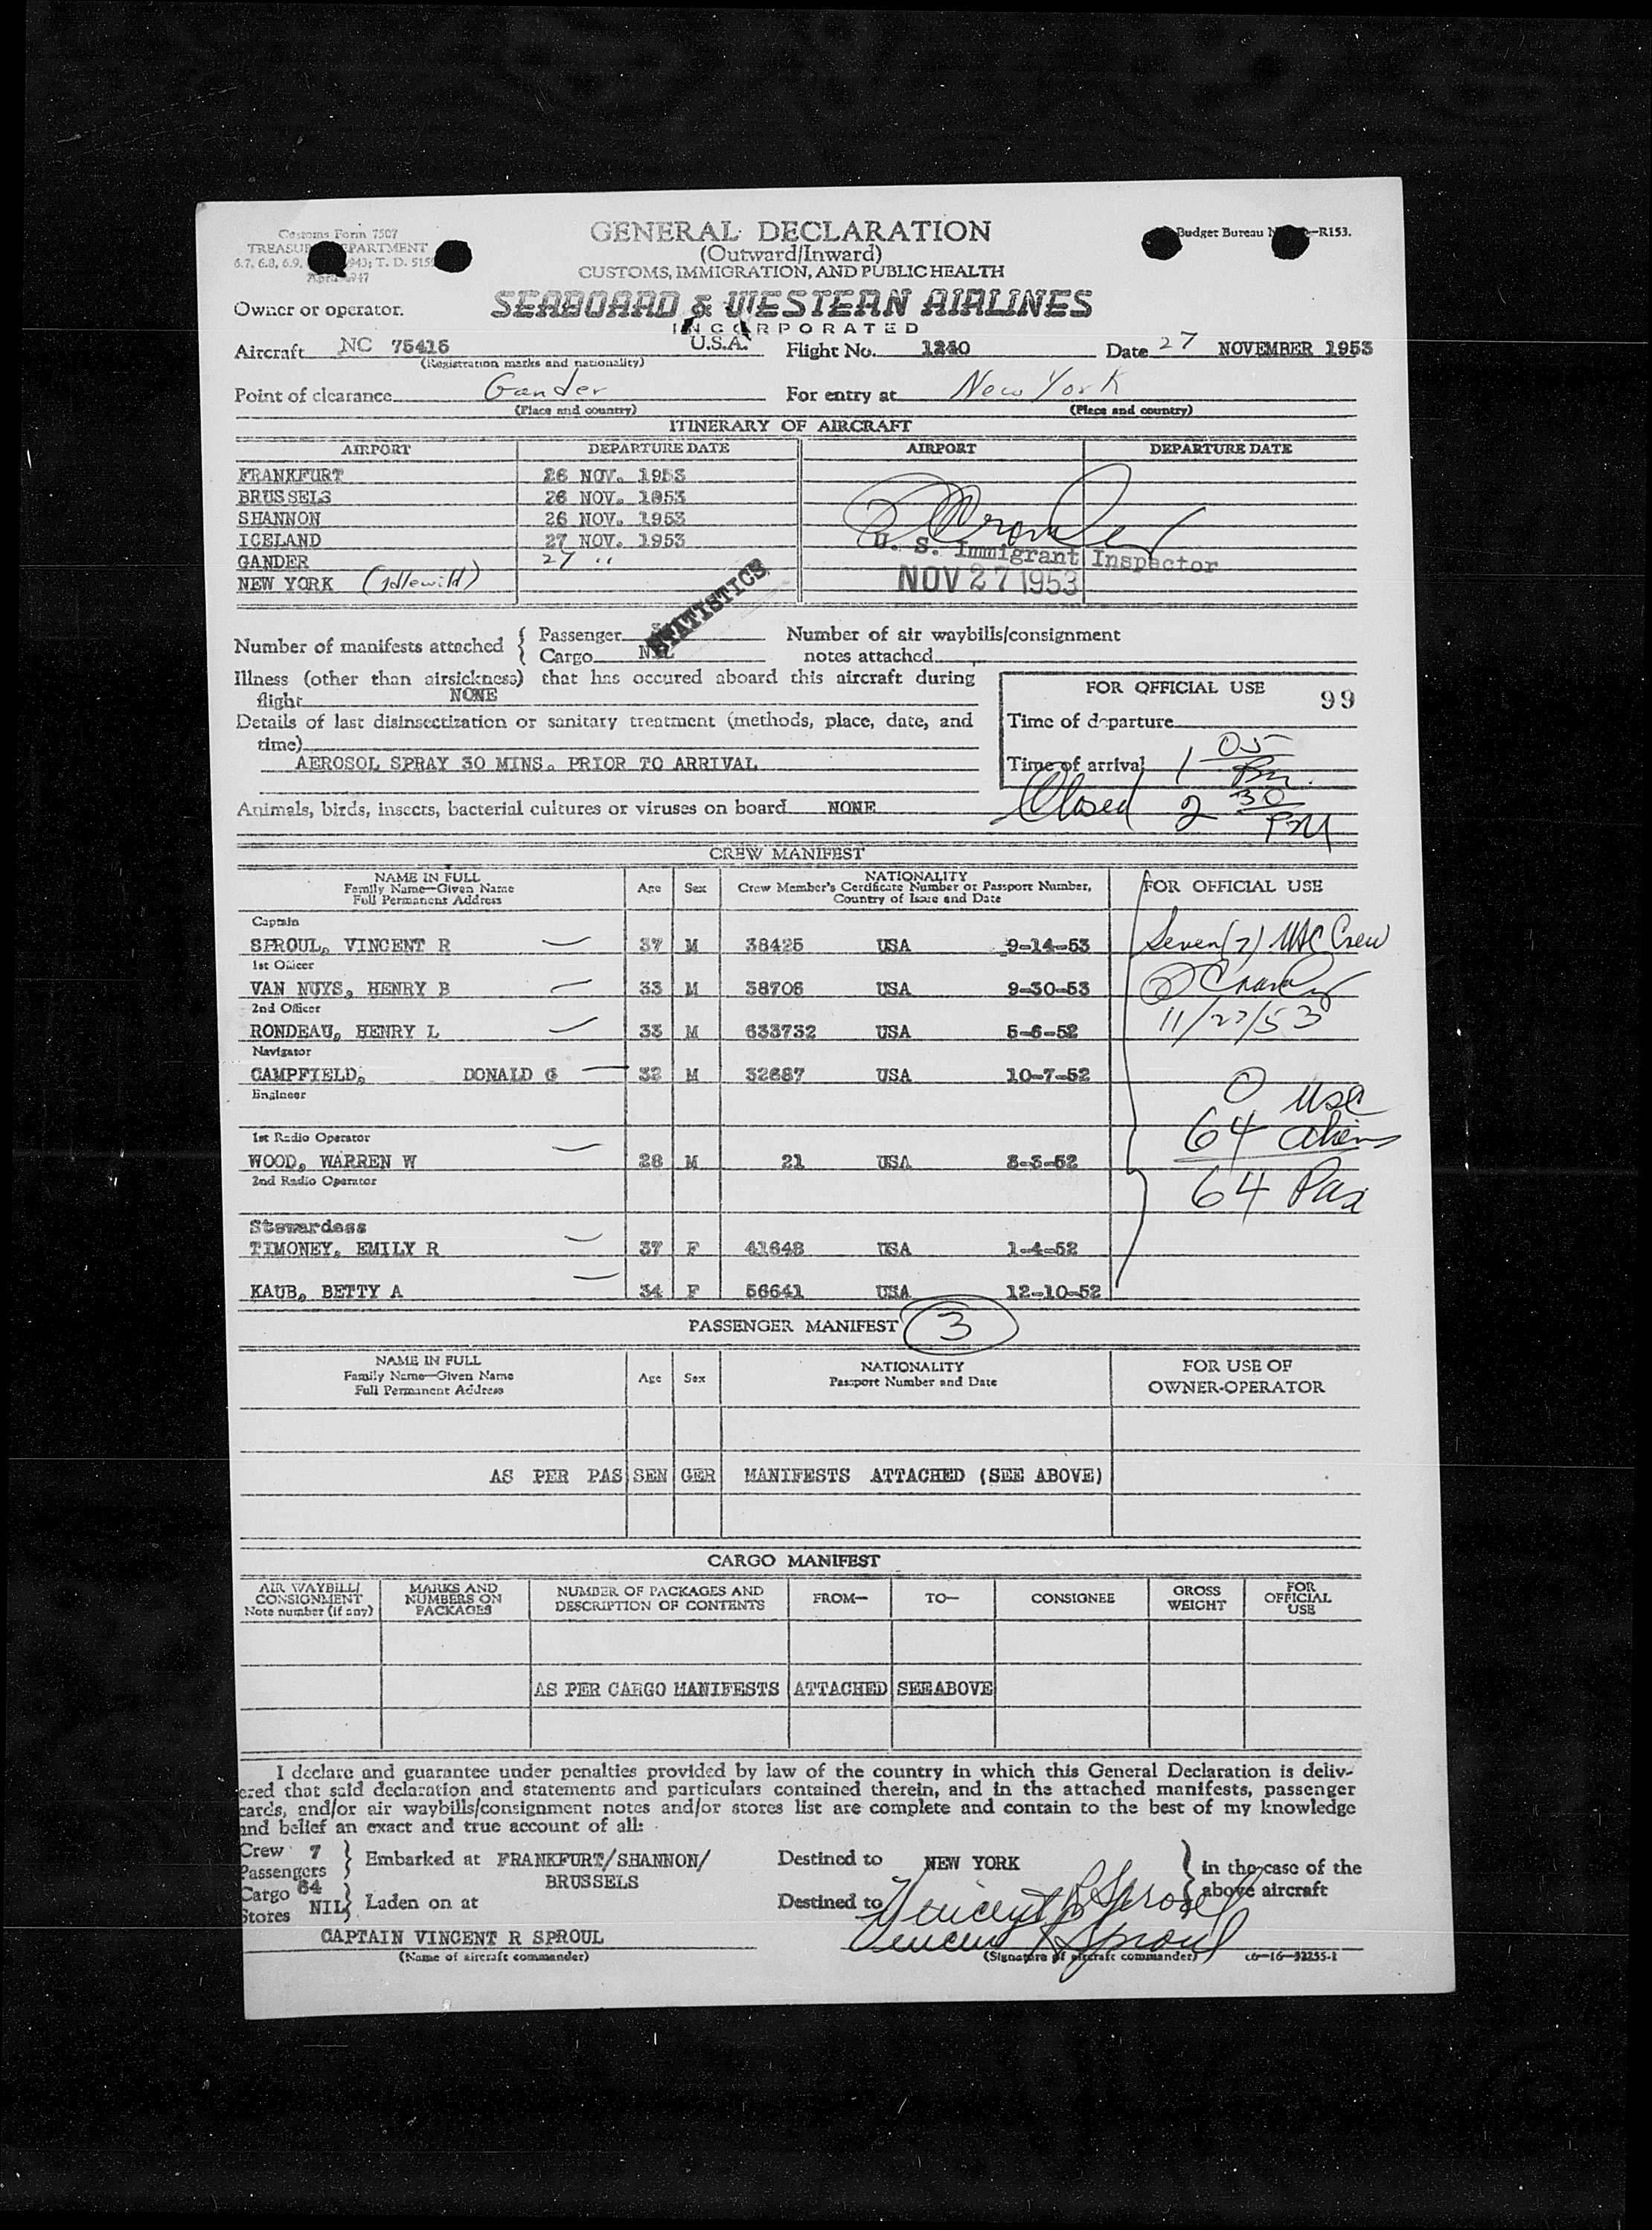 Customs Form 7507
GENERAL DECLARATION
Budget Bureau N –R153.
(Outward/Inward)
CUSTOMS, IMMIGRATION, AND PUBLIC HEALTH
Owner or operator.
SEABOARD & WESTERN AIRLINES
INCORPORATED
Aircraft NC 75415 U.S.A. Flight No. 1240 Date 27 NOVEMBER 1953
(Registration marks and nationality)
Point of clearance Gander For entry at New York
(Place and country) (Place and country)
ITINERARY OF AIRCRAFT
AIRPORT DEPARTURE DATE AIRPORT DEPARTURE DATE
FRANKFURT 26 NOV. 1953
BRUSSELS 26 NOV. 1953
SHANNON 26 NOV. 1953
ICELAND 27 NOV. 1953
U. S. Immigrant Inspector
GANDER 27 "
NOV 27 1953
NEW YORK (Idlewild)
STATISTICS
Number of manifests attached { Passenger
Cargo NIL
Number of air waybills/consignment
notes attached
Illness (other than airsickness) that has occured aboard this aircraft during
flight NONE
FOR OFFICIAL USE
99
Details of last disinsectization or sanitary treatment (methods, place, date, and
time)
Time of departure
AEROSOL SPRAY 30 MINS. PRIOR TO ARRIVAL
Time of arrival 1 05 Pm.
Animals, birds, insects, bacterial cultures or viruses on board NONE
Closed 2 30 PM
CREW MANIFEST
NAME IN FULL
Family Name—Given Name
Full Permanent Address
Age Sex
NATIONALITY
Crew Member's Certificate Number or Passport Number,
Country of Issue and Date
FOR OFFICIAL USE
Captain
SPROUL, VINCENT R 37 M 38425 USA 9-14-53
Seven (7) USC Crew
1st Officer
VAN NUYS, HENRY B 33 M 38706 USA 9-30-53
2nd Officer
RONDEAU, HENRY L 33 M 633732 USA 5-6-52
11/27/53
Navigator
CAMPFIELD, DONALD G 32 M 32687 USA 10-7-52
Engineer
0 USC
64 aliens
64 Pax
1st Radio Operator
WOOD, WARREN W 28 M 21 USA 3-3-52
2nd Radio Operator
Stewardess
TIMONEY, EMILY R 37 F 41648 USA 1-4-52
KAUB, BETTY A 34 F 56641 USA 12-10-52
PASSENGER MANIFEST 3
NAME IN FULL
Family Name—Given Name
Full Permanent Address
Age Sex
NATIONALITY
Passport Number and Date
FOR USE OF
OWNER-OPERATOR
AS PER PASSENGER MANIFESTS ATTACHED (SEE ABOVE)
CARGO MANIFEST
AIR WAYBILL/
CONSIGNMENT
Note number (if any)
MARKS AND
NUMBERS ON
PACKAGES
NUMBER OF PACKAGES AND
DESCRIPTION OF CONTENTS
FROM—
TO—
CONSIGNEE
GROSS
WEIGHT
FOR
OFFICIAL
USE
AS PER CARGO MANIFESTS ATTACHED SEE ABOVE
I declare and guarantee under penalties provided by law of the country in which this General Declaration is deliv-
ered that said declaration and statements and particulars contained therein, and in the attached manifests, passenger
cards, and/or air waybills/consignment notes and/or stores list are complete and contain to the best of my knowledge
and belief an exact and true account of all:
Crew 7
Passengers 64
} Embarked at FRANKFURT/SHANNON/
BRUSSELS
Destined to NEW YORK
} in the case of the
above aircraft
Cargo
Stores NIL
} Laden on at
Destined to
Vincent R Sproul
CAPTAIN VINCENT R SPROUL
Vincent R Sproul
(Name of aircraft commander)
(Signature of aircraft commander)
c6—16—52255-1